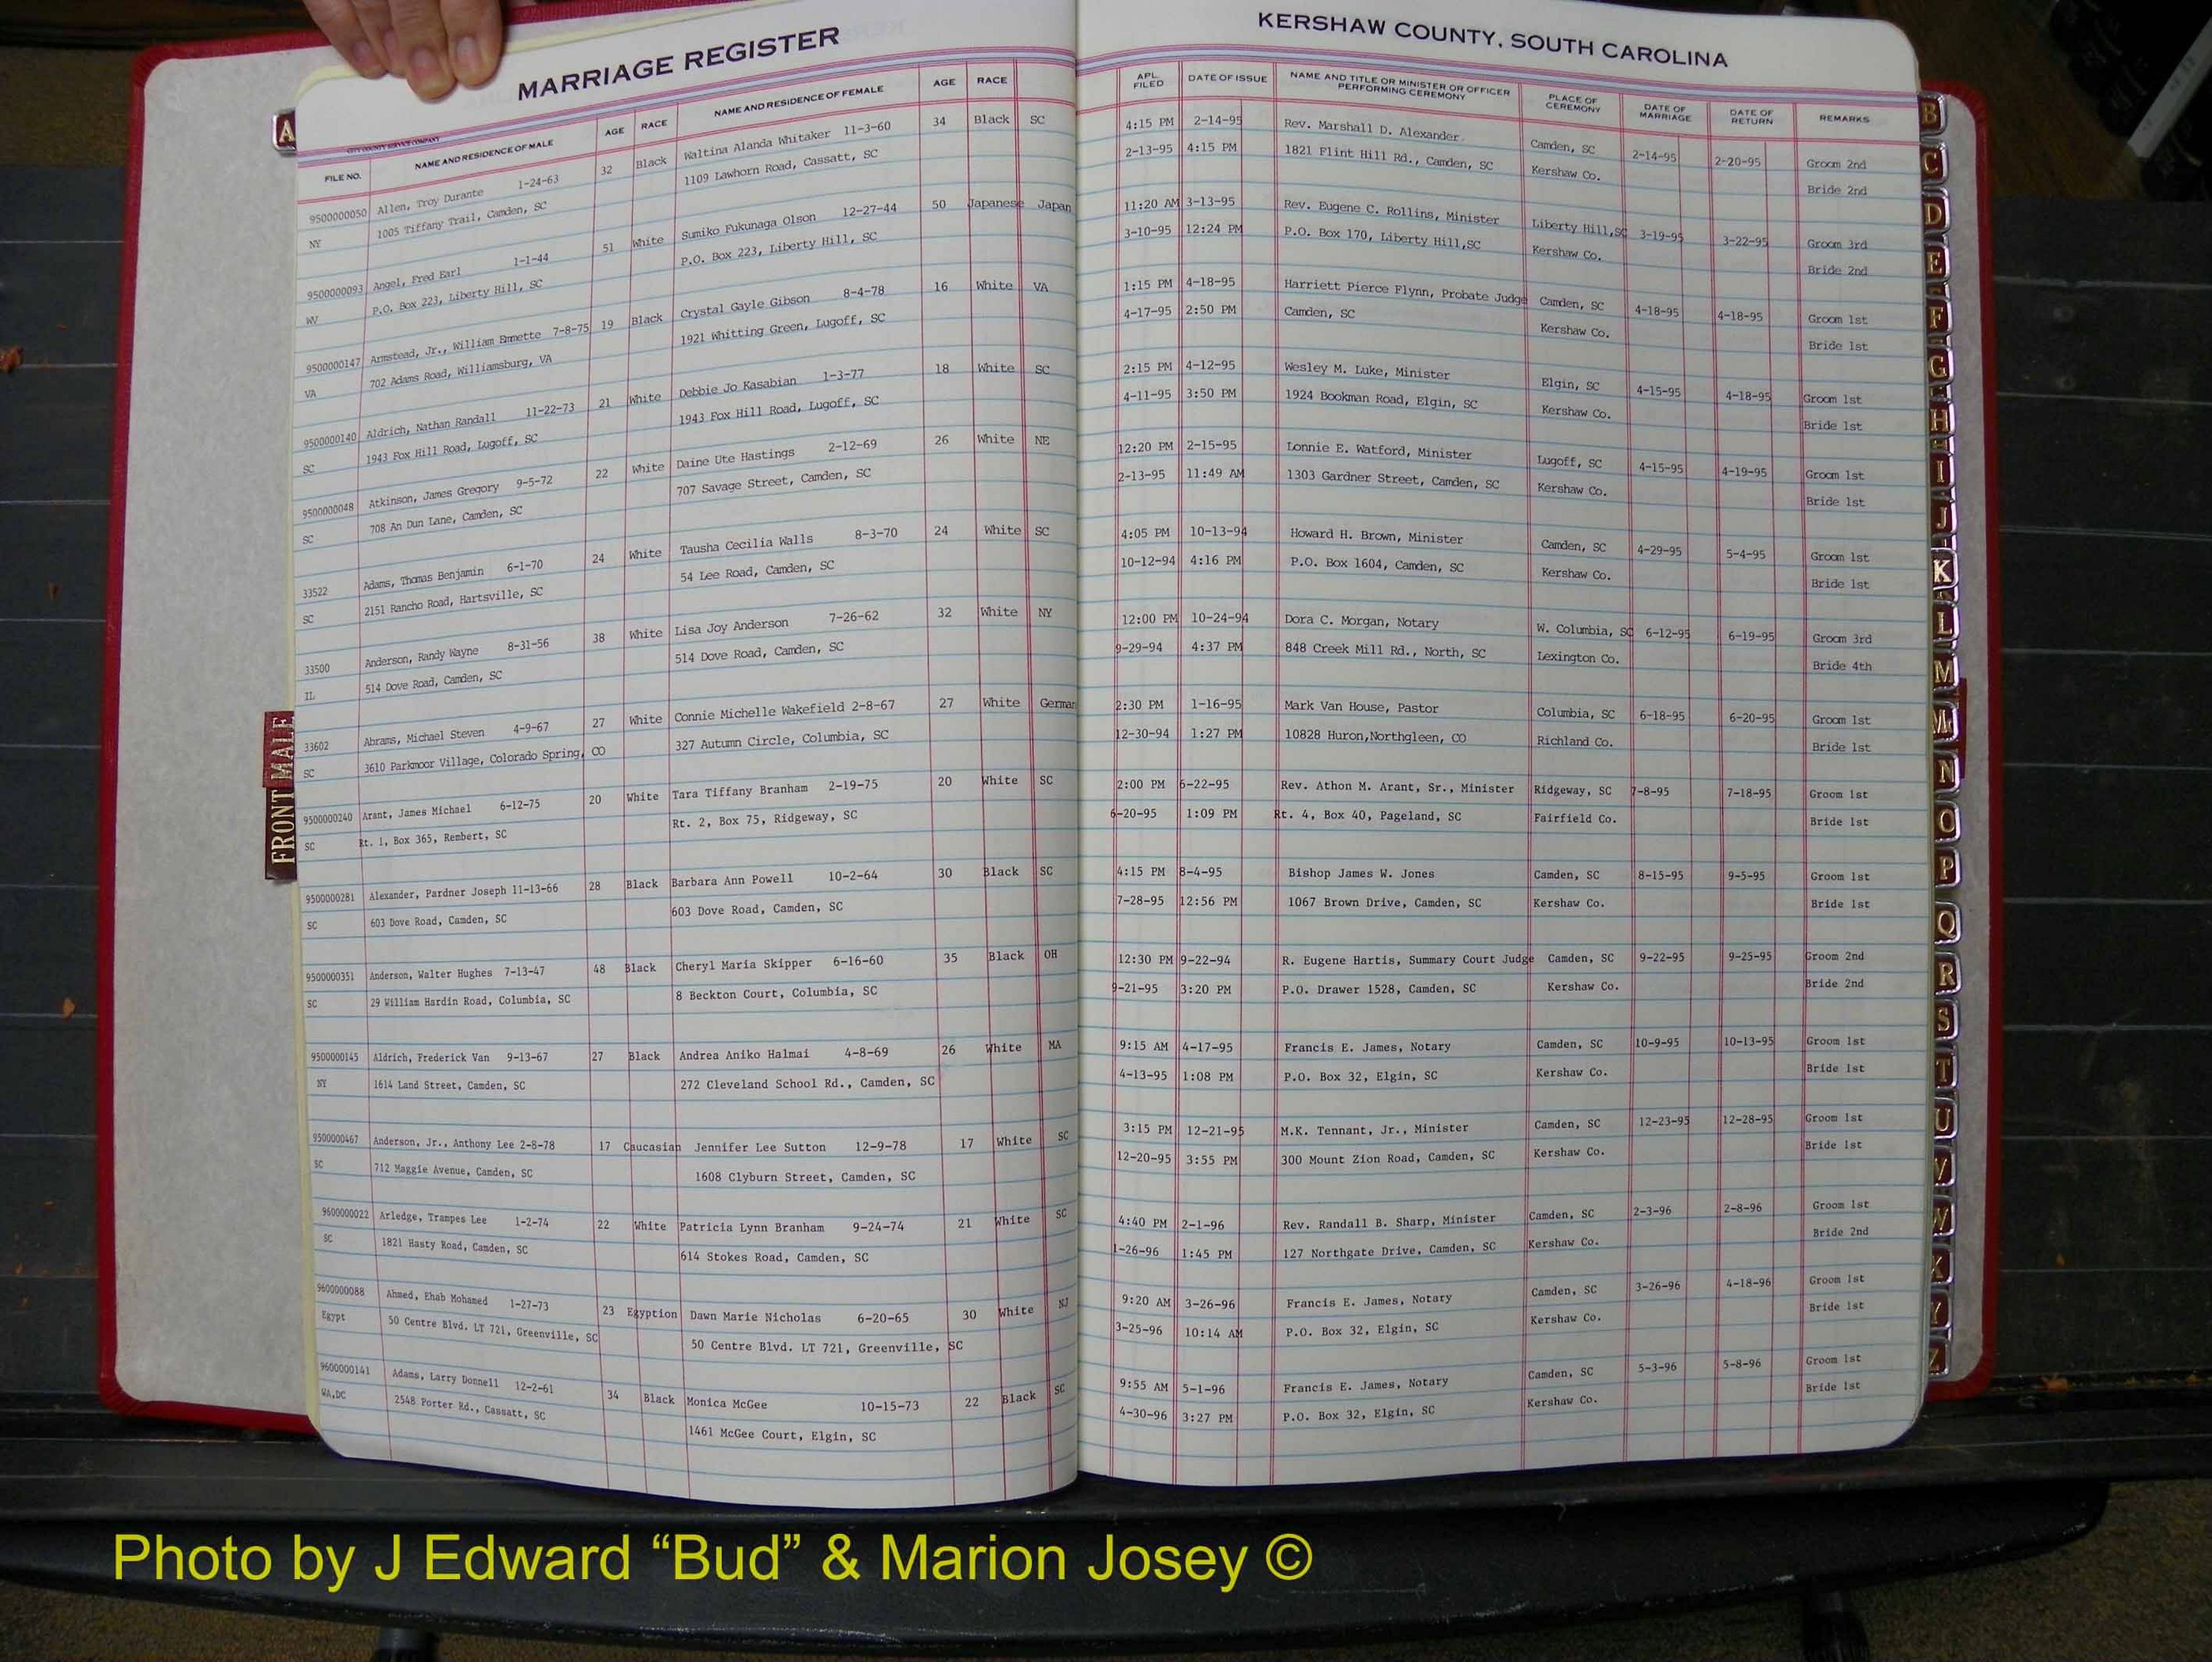 MARRIAGE REGISTER
KERSHAW COUNTY, SOUTH CAROLINA
FILE NO. NAME AND RESIDENCE OF MALE AGE RACE NAME AND RESIDENCE OF FEMALE AGE RACE APL. FILED DATE OF ISSUE NAME AND TITLE OR MINISTER OR OFFICER PERFORMING CEREMONY PLACE OF CEREMONY DATE OF MARRIAGE DATE OF RETURN REMARKS
9500000050 Allen, Troy Durante 1-24-63 32 Black Waltina Alanda Whitaker 11-3-60 34 Black SC 4:15 PM 2-14-95 Rev. Marshall D. Alexander Camden, SC 2-14-95 2-20-95 Groom 2nd
NY 1005 Tiffany Trail, Camden, SC 1109 Lawhorn Road, Cassatt, SC 2-13-95 4:15 PM 1821 Flint Hill Rd., Camden, SC Kershaw Co. Bride 2nd
9500000093 Angel, Fred Earl 1-1-44 51 White Sumiko Fukunaga Olson 12-27-44 50 Japanese Japan 11:20 AM 3-13-95 Rev. Eugene C. Rollins, Minister Liberty Hill,SC 3-19-95 3-22-95 Groom 3rd
WV P.O. Box 223, Liberty Hill, SC P.O. Box 223, Liberty Hill, SC 3-10-95 12:24 PM P.O. Box 170, Liberty Hill,SC Kershaw Co. Bride 2nd
9500000147 Armstead, Jr., William Emmette 7-8-75 19 Black Crystal Gayle Gibson 8-4-78 16 White VA 1:15 PM 4-18-95 Harriett Pierce Flynn, Probate Judge Camden, SC 4-18-95 4-18-95 Groom 1st
VA 702 Adams Road, Williamsburg, VA 1921 Whitting Green, Lugoff, SC 4-17-95 2:50 PM Camden, SC Kershaw Co. Bride 1st
9500000140 Aldrich, Nathan Randall 11-22-73 21 White Debbie Jo Kasabian 1-3-77 18 White SC 2:15 PM 4-12-95 Wesley M. Luke, Minister Elgin, SC 4-15-95 4-18-95 Groom 1st
SC 1943 Fox Hill Road, Lugoff, SC 1943 Fox Hill Road, Lugoff, SC 4-11-95 3:50 PM 1924 Bookman Road, Elgin, SC Kershaw Co. Bride 1st
9500000048 Atkinson, James Gregory 9-5-72 22 White Daine Ute Hastings 2-12-69 26 White NE 12:20 PM 2-15-95 Lonnie E. Watford, Minister Lugoff, SC 4-15-95 4-19-95 Groom 1st
SC 708 An Dun Lane, Camden, SC 707 Savage Street, Camden, SC 2-13-95 11:49 AM 1303 Gardner Street, Camden, SC Kershaw Co. Bride 1st
33522 Adams, Thomas Benjamin 6-1-70 24 White Tausha Cecilia Walls 8-3-70 24 White SC 4:05 PM 10-13-94 Howard H. Brown, Minister Camden, SC 4-29-95 5-4-95 Groom 1st
SC 2151 Rancho Road, Hartsville, SC 54 Lee Road, Camden, SC 10-12-94 4:16 PM P.O. Box 1604, Camden, SC Kershaw Co. Bride 1st
33500 Anderson, Randy Wayne 8-31-56 38 White Lisa Joy Anderson 7-26-62 32 White NY 12:00 PM 10-24-94 Dora C. Morgan, Notary W. Columbia, SC 6-12-95 6-19-95 Groom 3rd
IL 514 Dove Road, Camden, SC 514 Dove Road, Camden, SC 9-29-94 4:37 PM 848 Creek Mill Rd., North, SC Lexington Co. Bride 4th
33602 Abrams, Michael Steven 4-9-67 27 White Connie Michelle Wakefield 2-8-67 27 White German 2:30 PM 1-16-95 Mark Van House, Pastor Columbia, SC 6-18-95 6-20-95 Groom 1st
SC 3610 Parkmoor Village, Colorado Spring, CO 327 Autumn Circle, Columbia, SC 12-30-94 1:27 PM 10828 Huron,Northgleen, CO Richland Co. Bride 1st
9500000240 Arant, James Michael 6-12-75 20 White Tara Tiffany Branham 2-19-75 20 White SC 2:00 PM 6-22-95 Rev. Athon M. Arant, Sr., Minister Ridgeway, SC 7-8-95 7-18-95 Groom 1st
SC Rt. 1, Box 365, Rembert, SC Rt. 2, Box 75, Ridgeway, SC 6-20-95 1:09 PM Rt. 4, Box 40, Pageland, SC Fairfield Co. Bride 1st
9500000281 Alexander, Pardner Joseph 11-13-66 28 Black Barbara Ann Powell 10-2-64 30 Black SC 4:15 PM 8-4-95 Bishop James W. Jones Camden, SC 8-15-95 9-5-95 Groom 1st
SC 603 Dove Road, Camden, SC 603 Dove Road, Camden, SC 7-28-95 12:56 PM 1067 Brown Drive, Camden, SC Kershaw Co. Bride 1st
9500000351 Anderson, Walter Hughes 7-13-47 48 Black Cheryl Maria Skipper 6-16-60 35 Black OH 12:30 PM 9-22-94 R. Eugene Hartis, Summary Court Judge Camden, SC 9-22-95 9-25-95 Groom 2nd
SC 29 William Hardin Road, Columbia, SC 8 Beckton Court, Columbia, SC 9-21-95 3:20 PM P.O. Drawer 1528, Camden, SC Kershaw Co. Bride 2nd
9500000145 Aldrich, Frederick Van 9-13-67 27 Black Andrea Aniko Halmai 4-8-69 26 White MA 9:15 AM 4-17-95 Francis E. James, Notary Camden, SC 10-9-95 10-13-95 Groom 1st
NY 1614 Land Street, Camden, SC 272 Cleveland School Rd., Camden, SC 4-13-95 1:08 PM P.O. Box 32, Elgin, SC Kershaw Co. Bride 1st
9500000467 Anderson, Jr., Anthony Lee 2-8-78 17 Caucasian Jennifer Lee Sutton 12-9-78 17 White SC 3:15 PM 12-21-95 M.K. Tennant, Jr., Minister Camden, SC 12-23-95 12-28-95 Groom 1st
SC 712 Maggie Avenue, Camden, SC 1608 Clyburn Street, Camden, SC 12-20-95 3:55 PM 300 Mount Zion Road, Camden, SC Kershaw Co. Bride 1st
9600000022 Arledge, Trampes Lee 1-2-74 22 White Patricia Lynn Branham 9-24-74 21 White SC 4:40 PM 2-1-96 Rev. Randall B. Sharp, Minister Camden, SC 2-3-96 2-8-96 Groom 1st
SC 1821 Hasty Road, Camden, SC 614 Stokes Road, Camden, SC 1-26-96 1:45 PM 127 Northgate Drive, Camden, SC Kershaw Co. Bride 2nd
9600000088 Ahmed, Ehab Mohamed 1-27-73 23 Egyption Dawn Marie Nicholas 6-20-65 30 White NJ 9:20 AM 3-26-96 Francis E. James, Notary Camden, SC 3-26-96 4-18-96 Groom 1st
Egypt 50 Centre Blvd. LT 721, Greenville, SC 50 Centre Blvd. LT 721, Greenville, SC 3-25-96 10:14 AM P.O. Box 32, Elgin, SC Kershaw Co. Bride 1st
9600000141 Adams, Larry Donnell 12-2-61 34 Black Monica McGee 10-15-73 22 Black SC 9:55 AM 5-1-96 Francis E. James, Notary Camden, SC 5-3-96 5-8-96 Groom 1st
WA,DC 2548 Porter Rd., Cassatt, SC 1461 McGee Court, Elgin, SC 4-30-96 3:27 PM P.O. Box 32, Elgin, SC Kershaw Co. Bride 1st
A
FRONT MALE
B
C
D
E
F
G
H
I
J
K
L
M
Mc
N
O
P
Q
R
S
T
U
V
W
X
Y
Z
Photo by J Edward “Bud” & Marion Josey ©